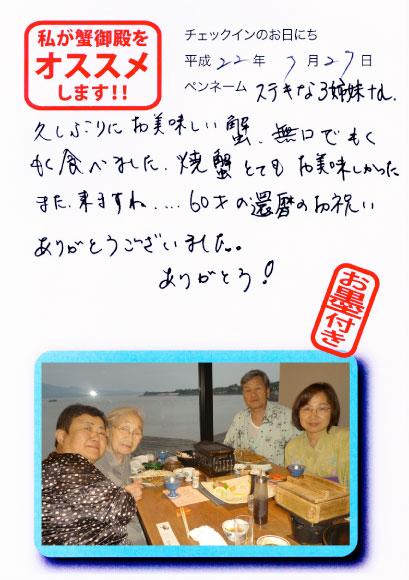 私が蟹御殿を
オススメ
します!!
チェックインのお日にち
平成 22年 7月27日
ペンネーム ステキな3姉妹+α.
久しぶりにお美味しい蟹、無口でもく
もく食べました。焼蟹とてもお美味しかった
また、来ますね、...60才の還暦のお祝い
ありがとうございました。
ありがとう!
お墨付き